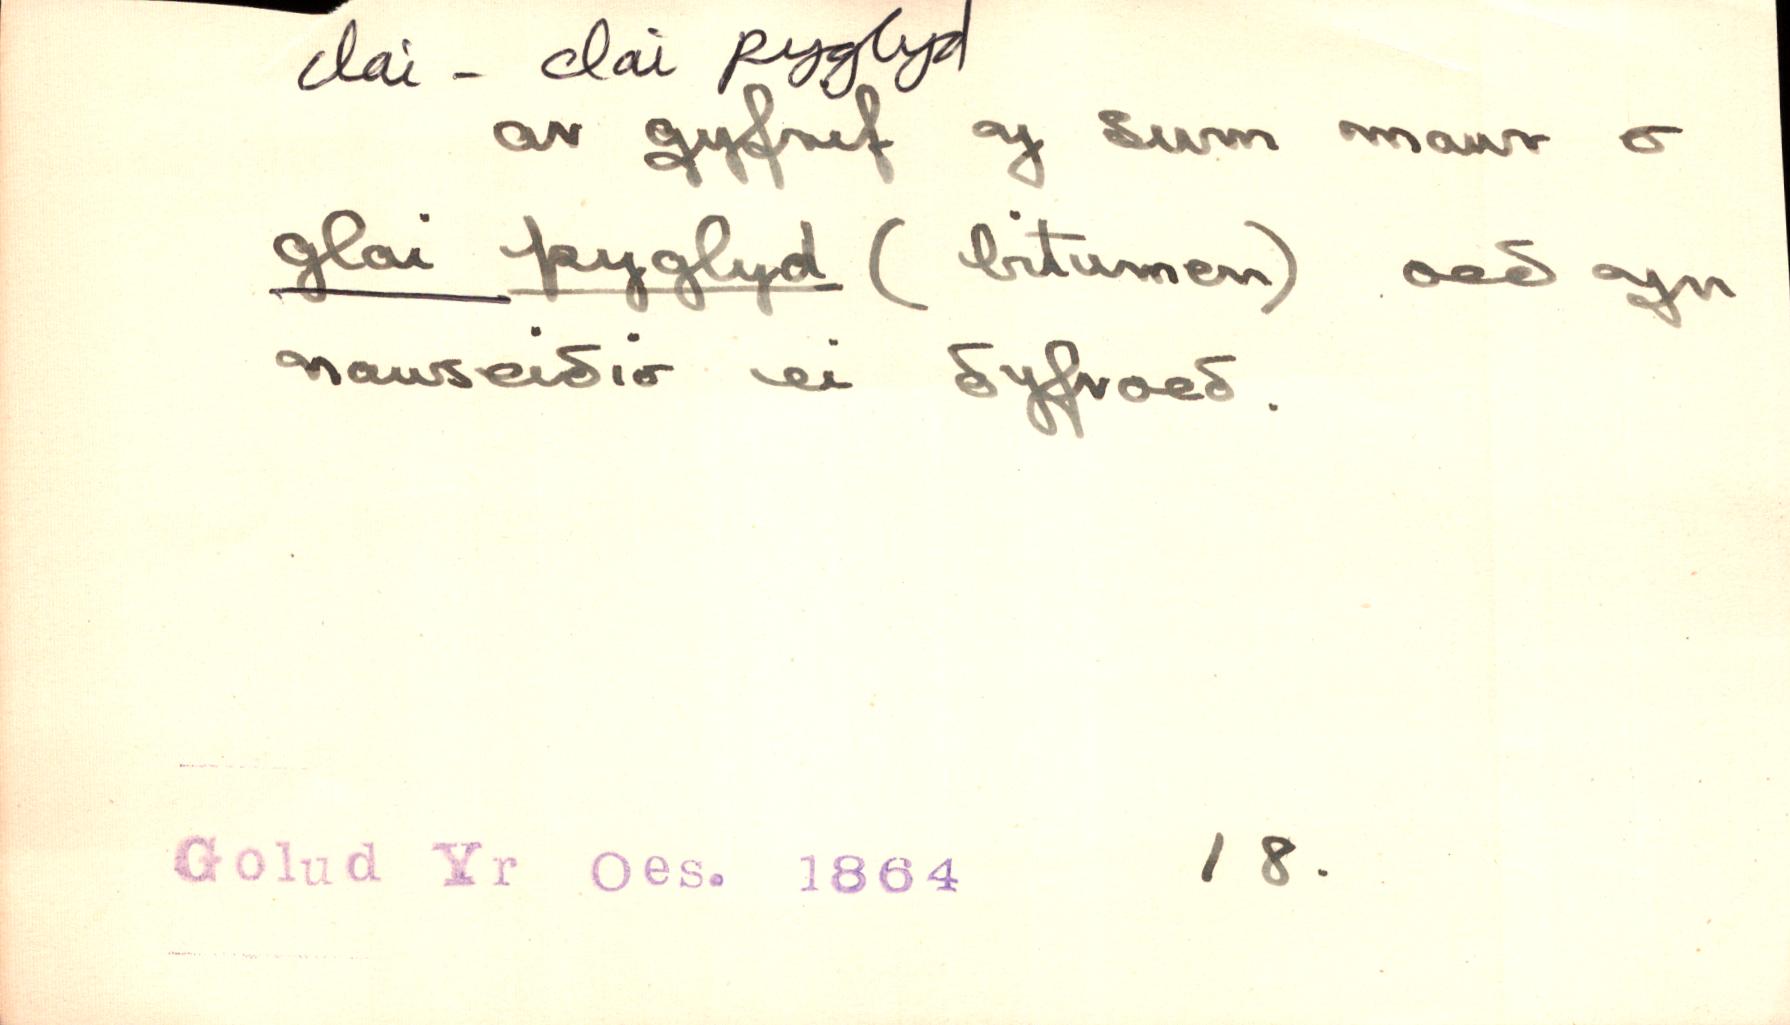 clai - clai pyglyd
ar gyfrif y sum mawr o
glai pyglyd (bitumen) oeδ yn
nawseiδio ei δyfroeδ.
Golud Yr Oes. 1864 18.